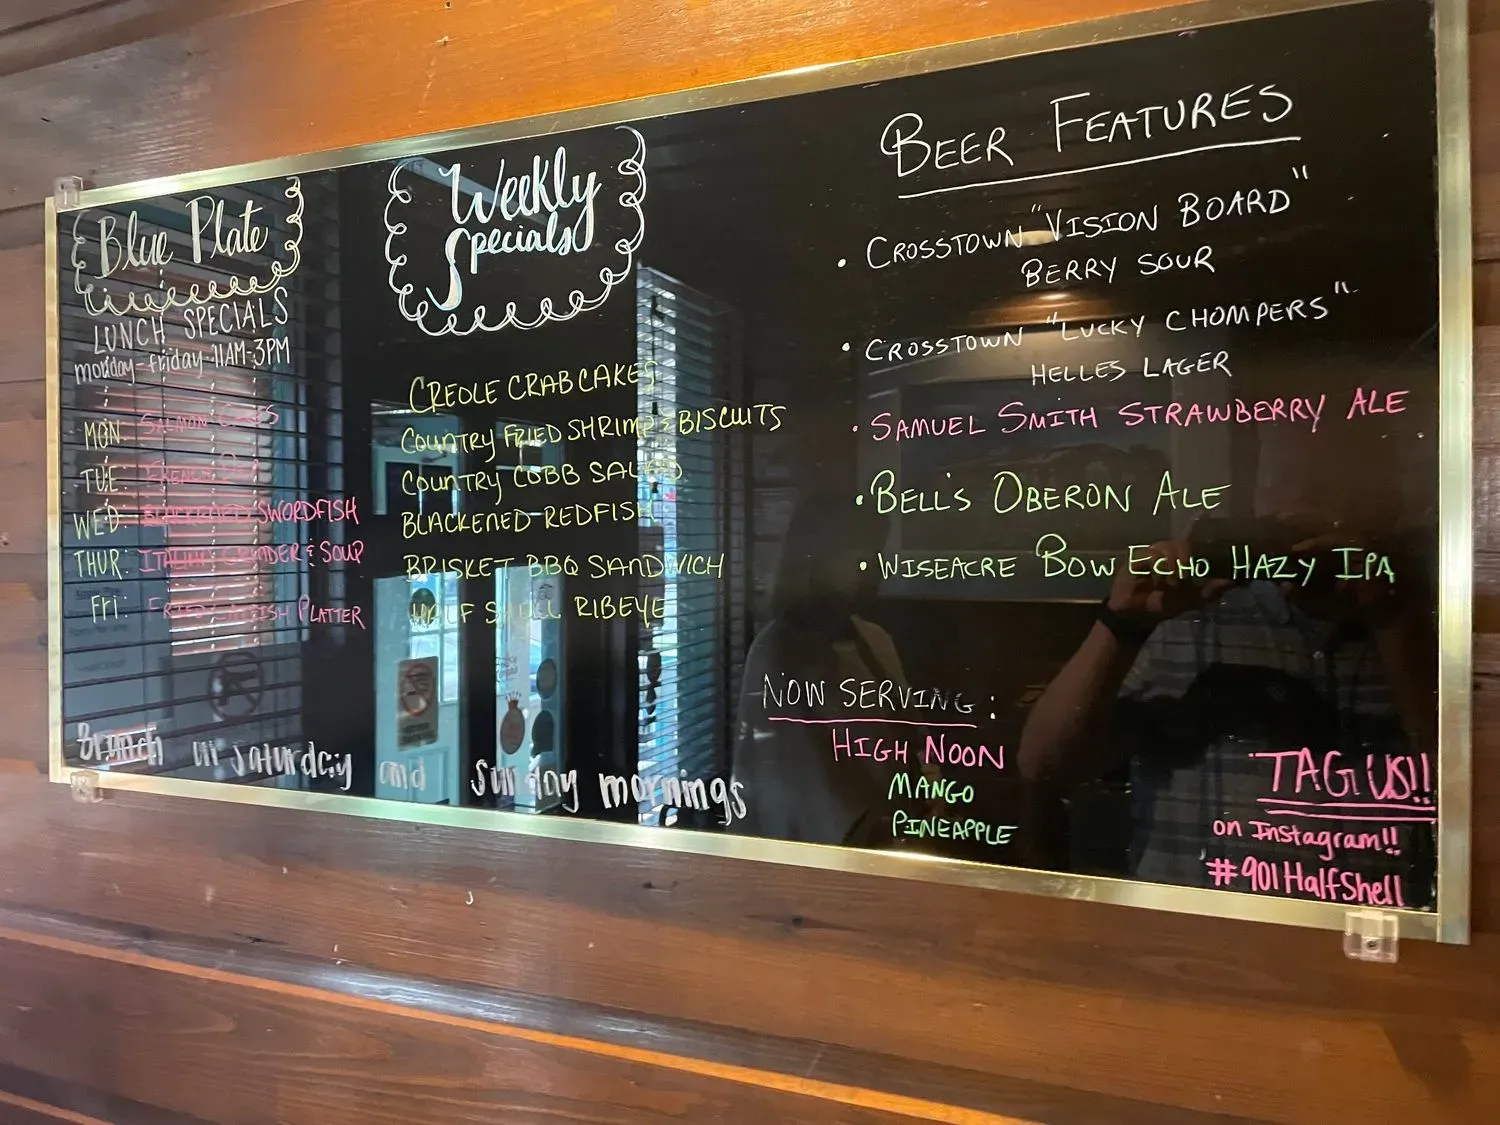 Blue Plate
LUNCH SPECIALS
monday-friday-11AM-3PM
MON: SALMON CAKES
TUE: FRENCH DIP
WED: BLACKENED SWORDFISH
THUR: ITALIAN GRINDER & SOUP
Fri: FRIED CATFISH PLATTER
Weekly
Specials
CREOLE CRABCAKES
COUNTRY FRIED SHRIMP & BISCUITS
COUNTRY COBB SALAD
BLACKENED REDFISH
BRISKET BBQ SANDWICH
HALF SHELL RIBEYE
Brunch on saturday and sunday mornings
BEER FEATURES
• CROSSTOWN "VISION BOARD"
BERRY SOUR
• CROSSTOWN "LUCKY CHOMPERS"
HELLES LAGER
• SAMUEL SMITH STRAWBERRY ALE
• BELL'S OBERON ALE
• WISEACRE BOW ECHO HAZY IPA
NOW SERVING:
HIGH NOON
MANGO
PINEAPPLE
TAG US!!
on Instagram!!
#901HalfShell